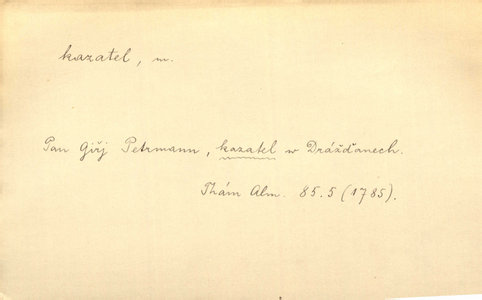 kazatel, m.
Pan Giřj Petrmann, kazatel w Drážďanech.
Thám Alm. 85.5 (1785).